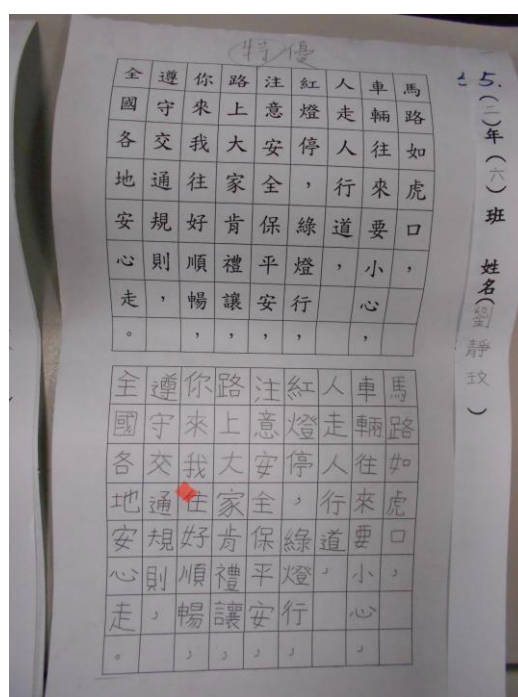 特優
5.（二）年（六）班 姓名（劉靜玟）
馬路如虎口，
車輛往來要小心，
人走人行道，
紅燈停，綠燈行，
注意安全保平安，
路上大家肯禮讓，
你來我往好順暢，
遵守交通規則，
全國各地安心走。
馬路如虎口，
車輛往來要小心，
人走人行道，
紅燈停，綠燈行，
注意安全保平安，
路上大家肯禮讓，
你來我往好順暢，
遵守交通規則，
全國各地安心走。